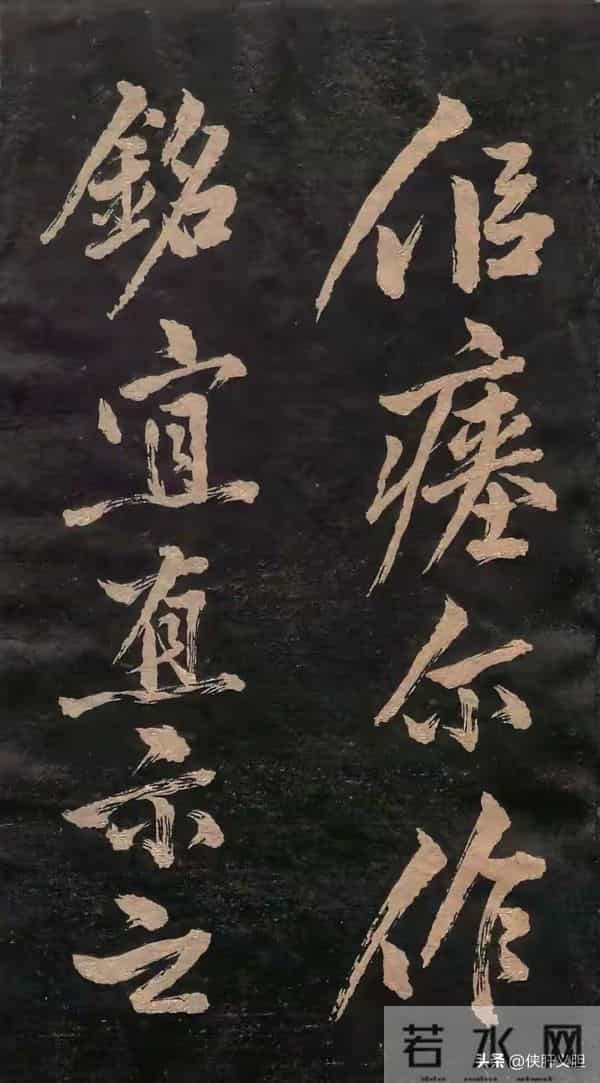 侣瘞尓作
銘宜直示之
若水网
头条 @侠肝义胆